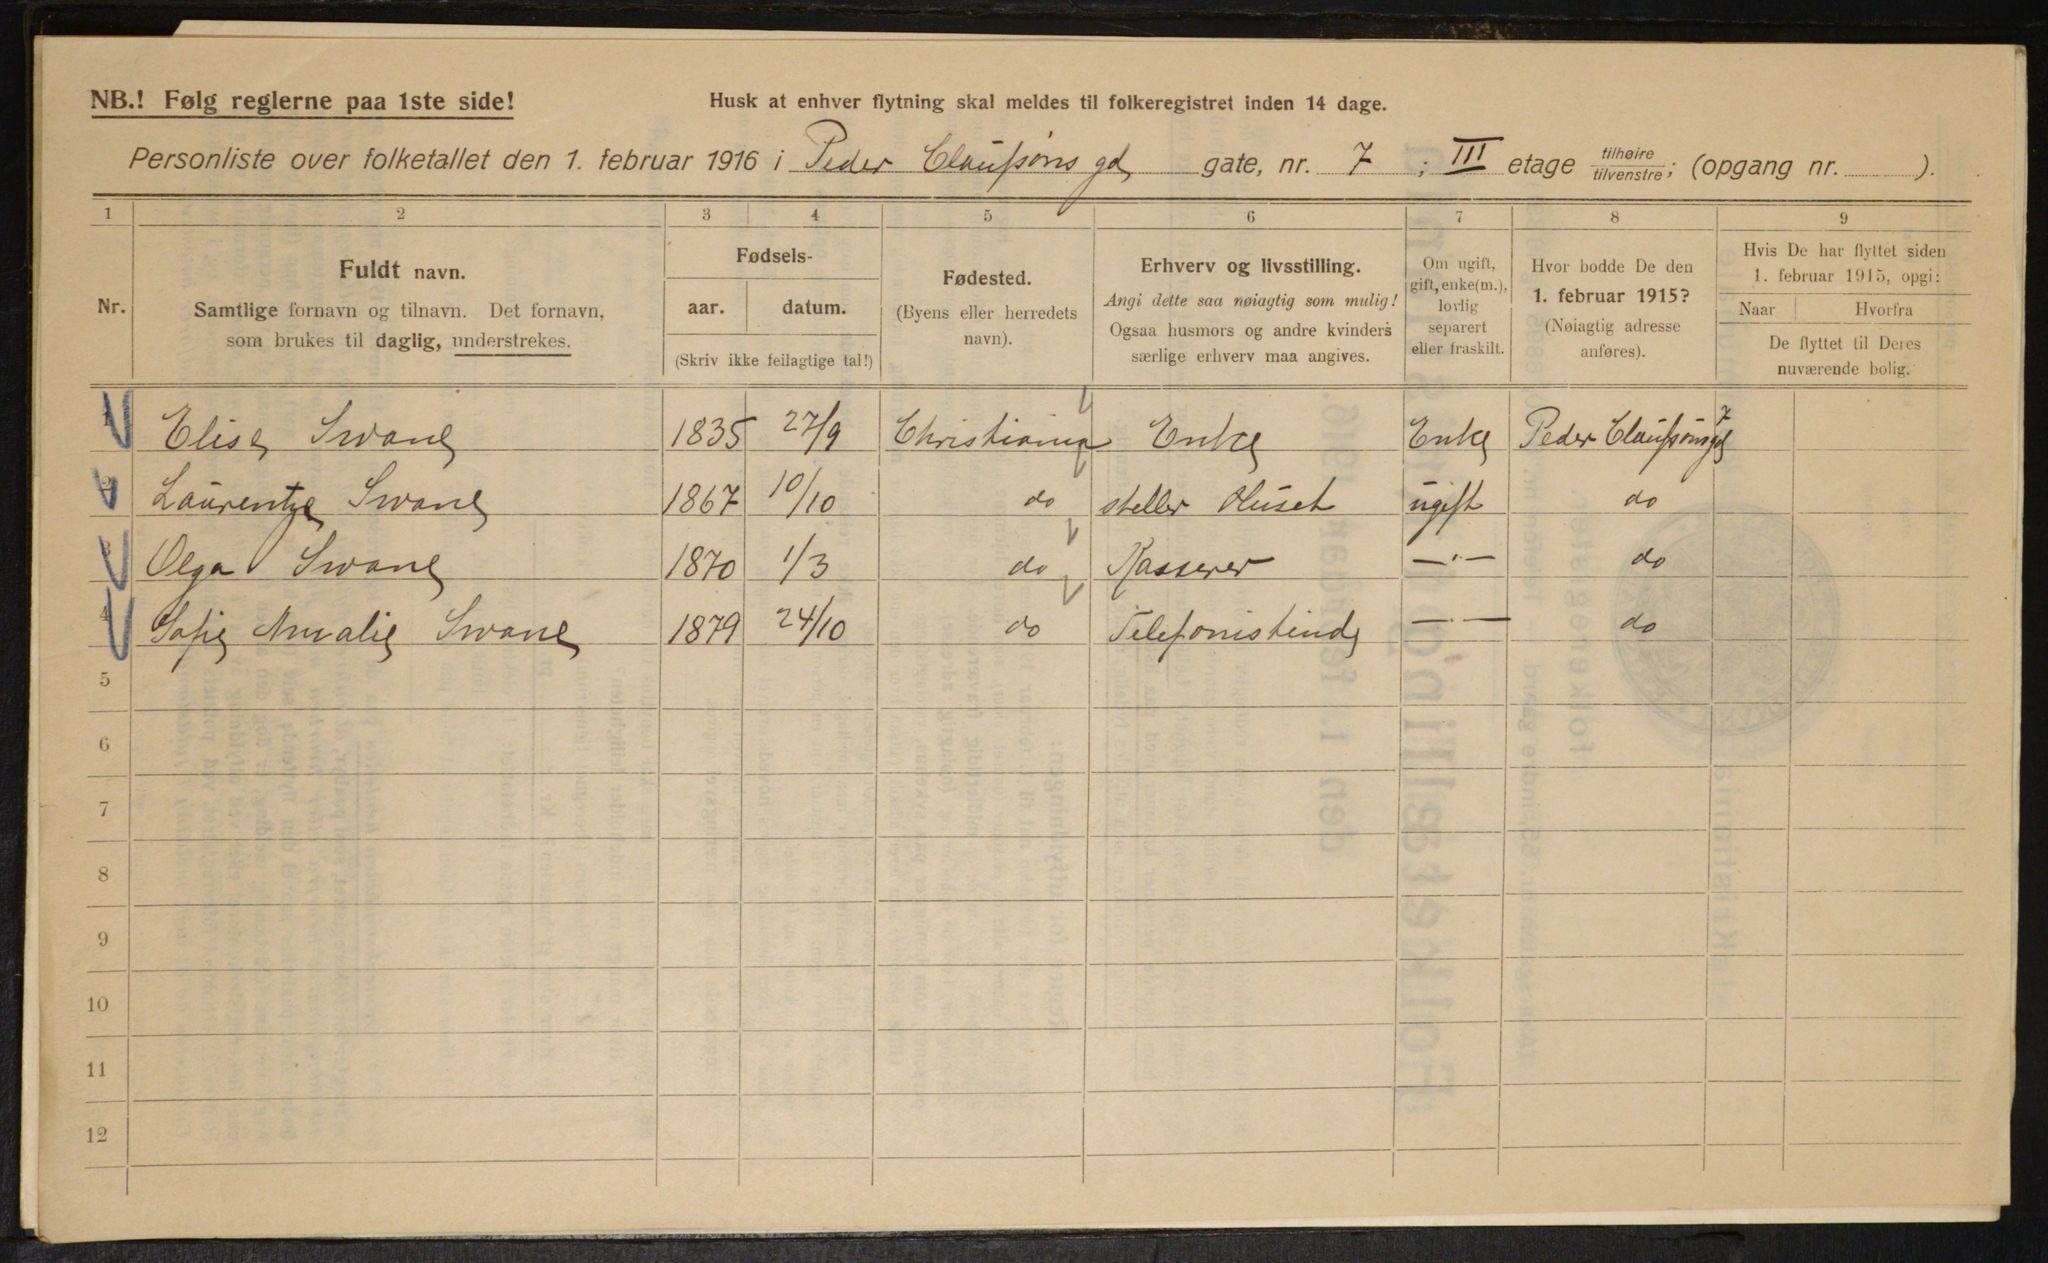 NB.! Følg reglerne paa 1ste side!
Husk at enhver flytning skal meldes til folkeregistret inden 14 dage.
Personliste over folketallet den 1. februar 1916 i Peder Claussøns gd gate, nr. 7 ; III etage tilhøire tilvenstre; (opgang nr. ).
1 2 3 4 5 6 7 8 9
Nr.
Fuldt navn.
Samtlige fornavn og tilnavn. Det fornavn,
som brukes til daglig, understrekes.
Fødsels-
aar. datum.
(Skriv ikke feilagtige tal!)
Fødested.
(Byens eller herredets
navn).
Erhverv og livsstilling.
Angi dette saa nøiagtig som mulig!
Ogsaa husmors og andre kvinders
særlige erhverv maa angives.
Om ugift,
gift, enke(m.),
lovlig
separert
eller fraskilt.
Hvor bodde De den
1. februar 1915?
(Nøiagtig adresse
anføres).
Hvis De har flyttet siden
1. februar 1915, opgi:
Naar Hvorfra
De flyttet til Deres
nuværende bolig.
1 Elise Swane 1835 27/9 Christiania Enke Enke Peder Claussønsgd 7
2 Laurentze Swane 1867 10/10 do steller Huset ugift do
3 Olga Swane 1870 1/3 do Kasserer —"— do
4 Sofie Amalie Swane 1879 24/10 do Telefonistinde —"— do
5
6
7
8
9
10
11
12